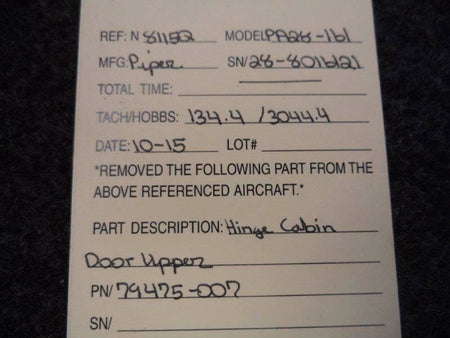 REF: N 8115Q MODEL PA28-161
MFG: Piper SN/ 28-8016121
TOTAL TIME:
TACH/HOBBS: 134.4 / 3044.4
DATE: 10-15 LOT#
*REMOVED THE FOLLOWING PART FROM THE
ABOVE REFERENCED AIRCRAFT.*
PART DESCRIPTION: Hinge Cabin
Door Upper
PN/ 79475-007
SN/